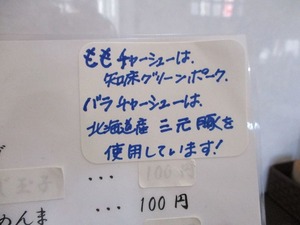 ももチャーシューは、
知床グリーンポーク。
バラチャーシューは、
北海道産 三元豚を
使用しています!
玉子 ... 100円
めんま ... 100円